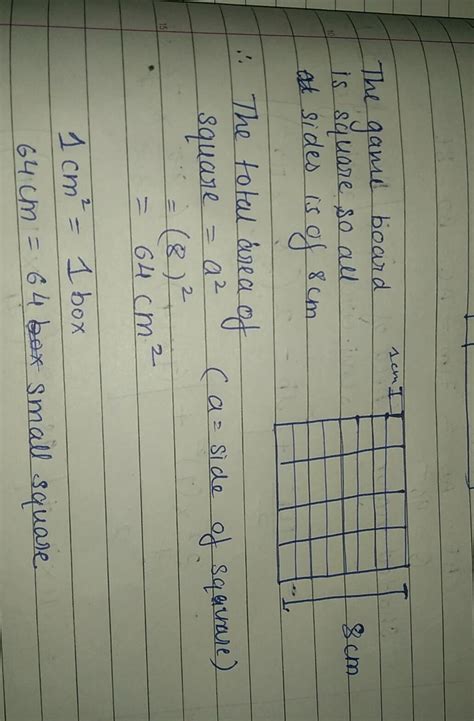 The game board
is square so all
sides is of 8cm
1cm
8cm
∴ The total area of
square = a² (a = side of square)
= (8)²
= 64 cm²
1 cm² = 1 box
64 cm = 64 box small square.